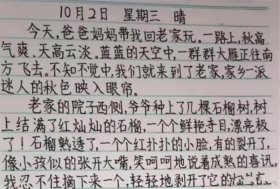 10月2日 星期三 晴
今天,爸爸妈妈带我回老家玩,一路上,秋高
气爽,天高云淡,蓝蓝的天空中,一群群大雁正往南
方飞去,不知不觉中,我们就来到了老家,家乡一派
迷人的秋色映入眼帘。
老家的院子西侧,爷爷种了几棵石榴树,树
上结满了红灿灿的石榴,一个个鲜艳夺目,漂亮极
了!石榴熟透了,一个个红扑扑的小脸,有的裂开了,
像小孩似的张开大嘴,笑呵呵地说着成熟的喜讯,
我忍不住摘下来一个,轻轻地剥开了它的